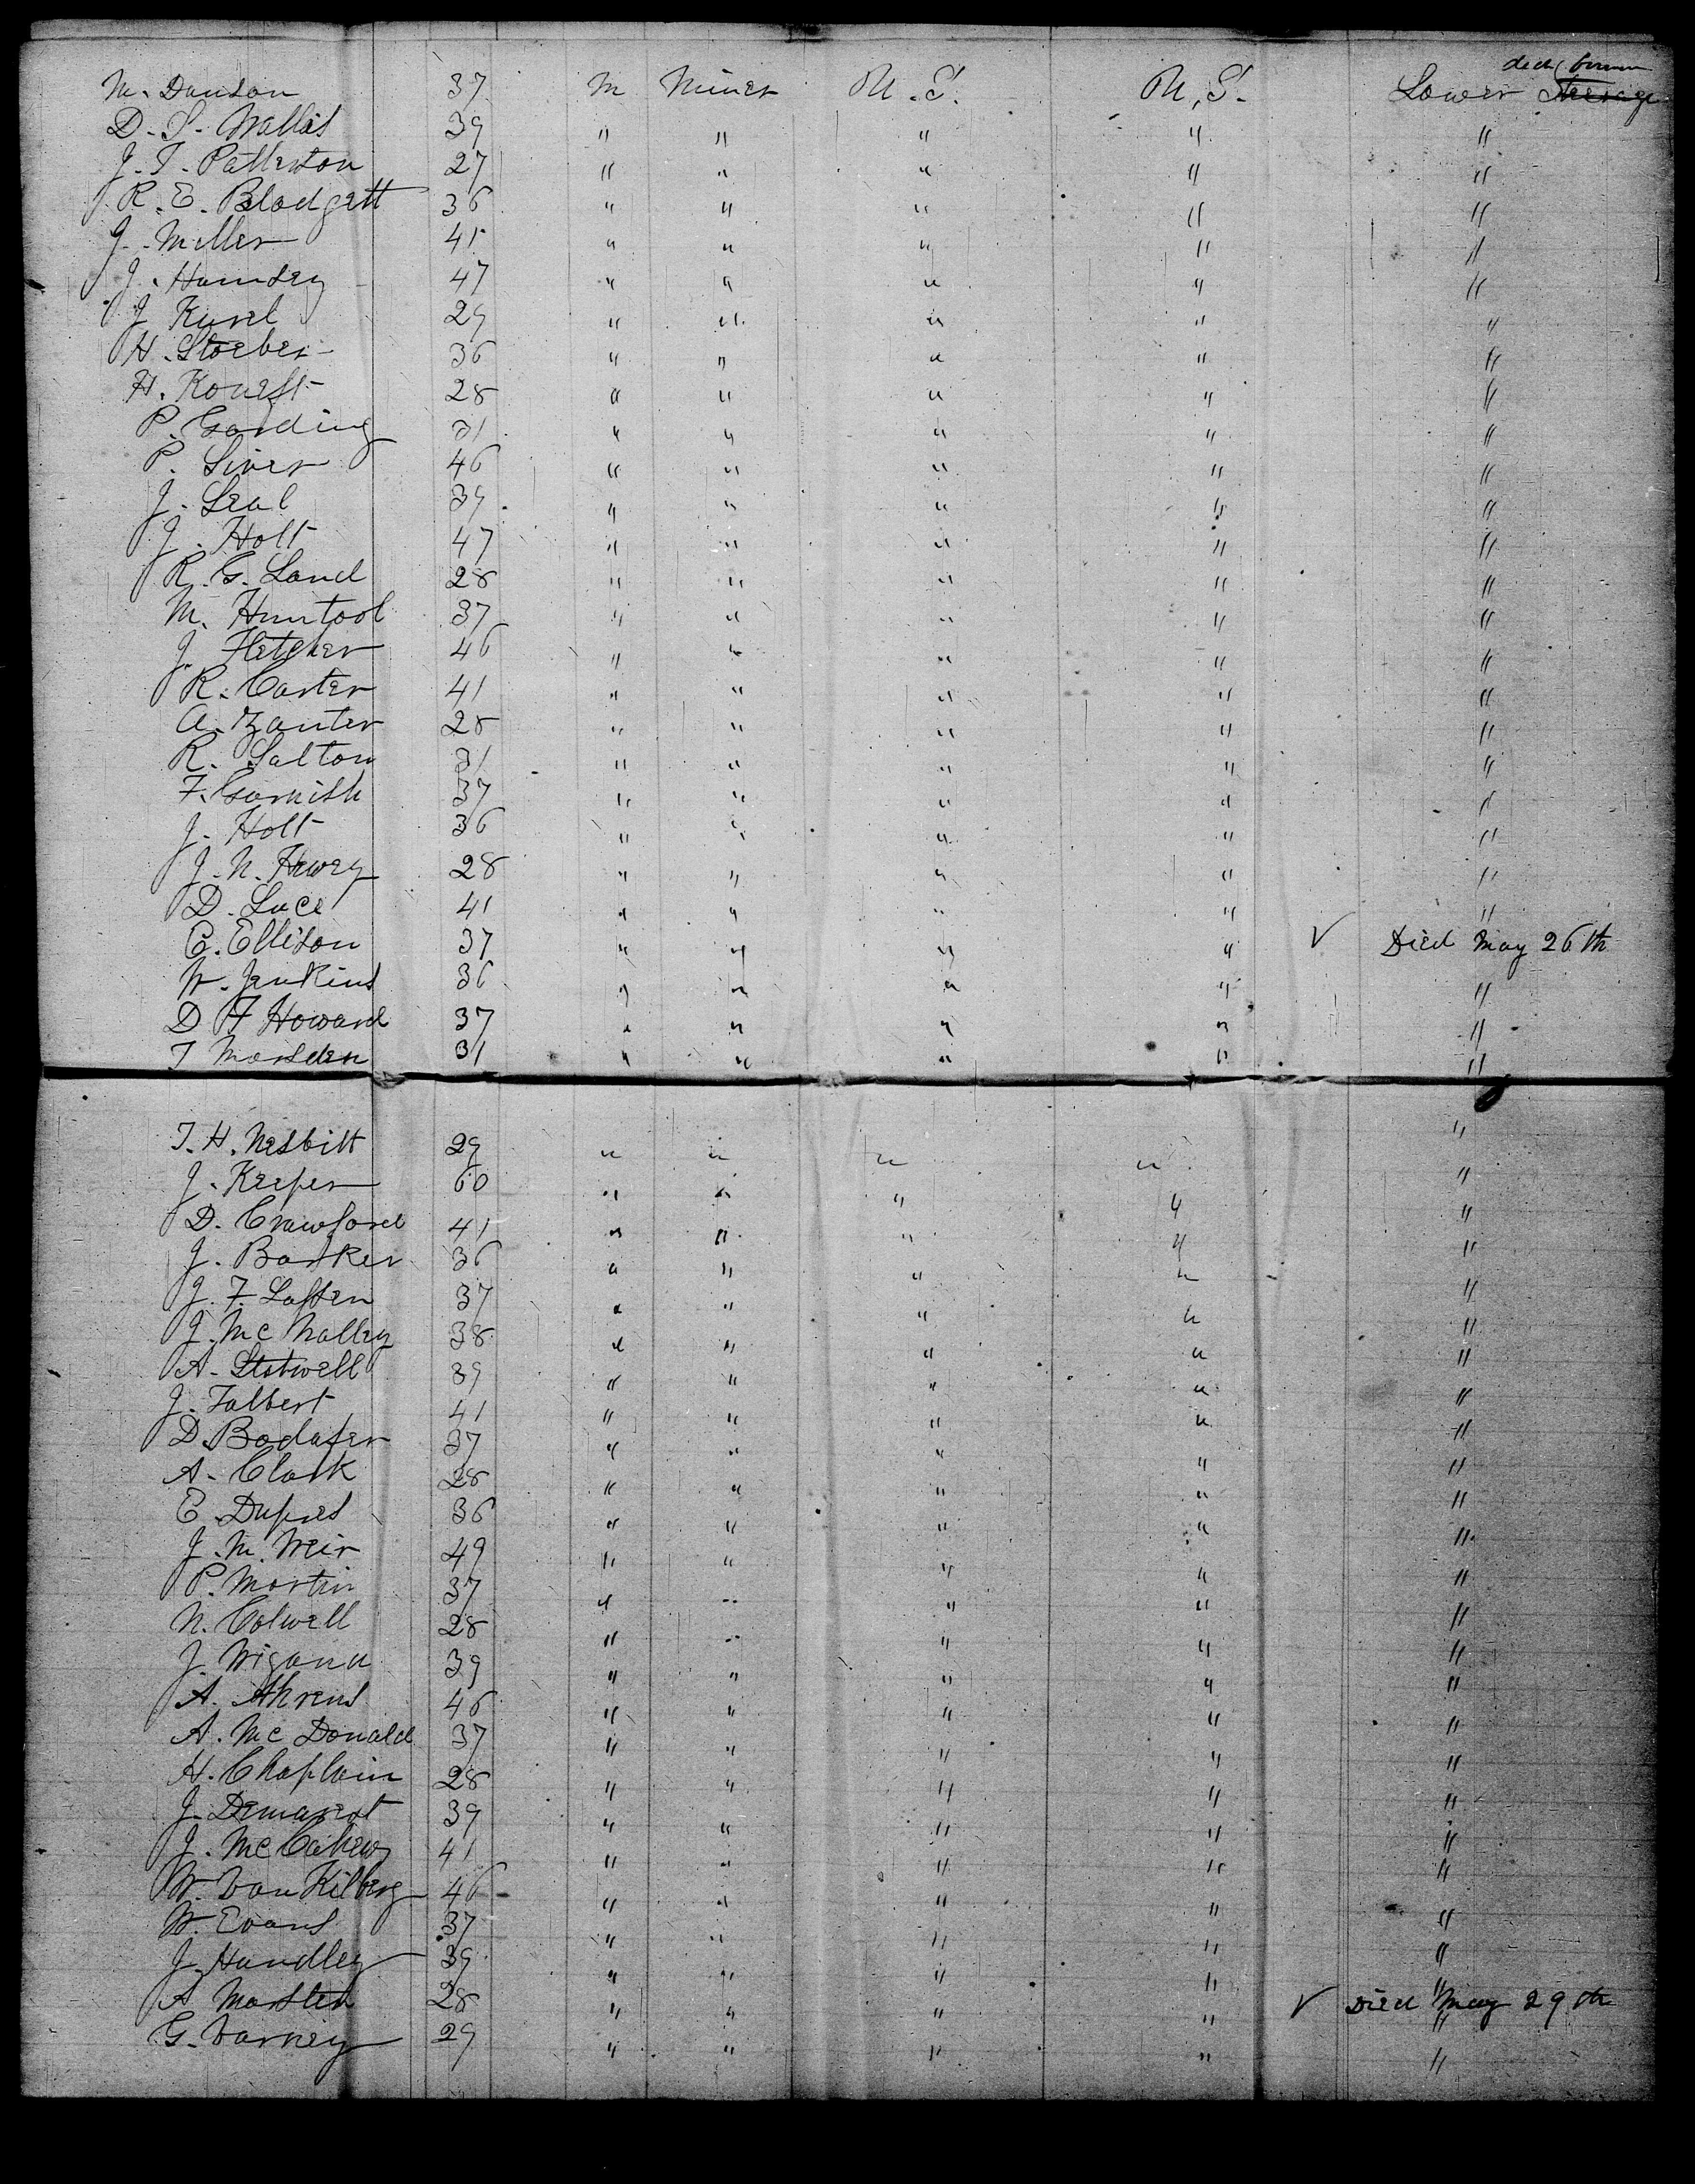 M. Dawson 37 M Miner U.S. U.S. Lower Steerage
D. S. Wallis 39 " " " " "
J. T. Patterson 27 " " " " "
R. E. Blodgett 36 " " " " "
J. Miller 41 " " " " "
J. 47 " " " " "
J 29 " " " " "
H. Stoeber 36 " " " " "
H. 28 " " " " "
P. Garding 31 " " " " "
P. Siver 46 " " " " "
J. Seal 39 " " " " "
J. Holt 47 " " " " "
R. G. Land 28 " " " " "
M. Huntool 37 " " " " "
J. Fletcher 46 " " " " "
R. Carter 41 " " " " "
A. Zanter 28 " " " " "
R. Salton 31 " " " " "
F. Garnish 37 " " " " "
J. Holt 36 " " " " "
J. N. 28 " " " " "
D. Luce 41 " " " " "
C. Ellison 37 " " " " ✓ Died May 26th
W. Jenkins 36 " " " " "
D F Howard 37 " " " " "
T Marsden 31 " " " " "
T. H. Nesbitt 29 " " " " "
J. Keeper 60 " " " " "
D. Crawford 41 " " " " "
J. Barker 36 " " " " "
J. F. Lassen 37 " " " " "
J. Mc Nalley 38 " " " " "
A. Stotwell 39 " " " " "
J. Talbert 41 " " " " "
D. 37 " " " " "
A. Clark 28 " " " " "
E. Dupres 36 " " " " "
J. M. Weir 49 " " " " "
P. Martin 37 " " " " "
N. Colwell 28 " " " " "
J. Wigann 39 " " " " "
A. Ahrens 46 " " " " "
A. Mc Donald 37 " " " " "
H. Chaplain 28 " " " " "
J. Demarest 39 " " " " "
J. 41 " " " " "
W. Van Kilberg 46 " " " " "
W. Evans 37 " " " " "
J. Handley 39 " " " " "
A Marsten 28 " " " " ✓ Died May 29th "
G. Varney 29 " " " " "